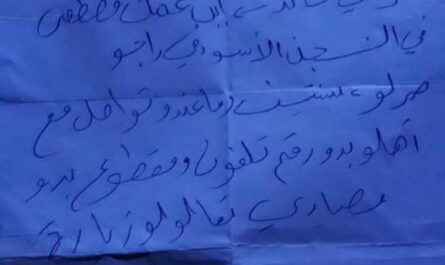 ابن عمك مصطفى
في السجن الأسود في راجو
صرلو سنتين وما عندو تواصل مع
أهلو بدو رقم تلفون ومقطوع بدو
مصاري تعالولو زيارة